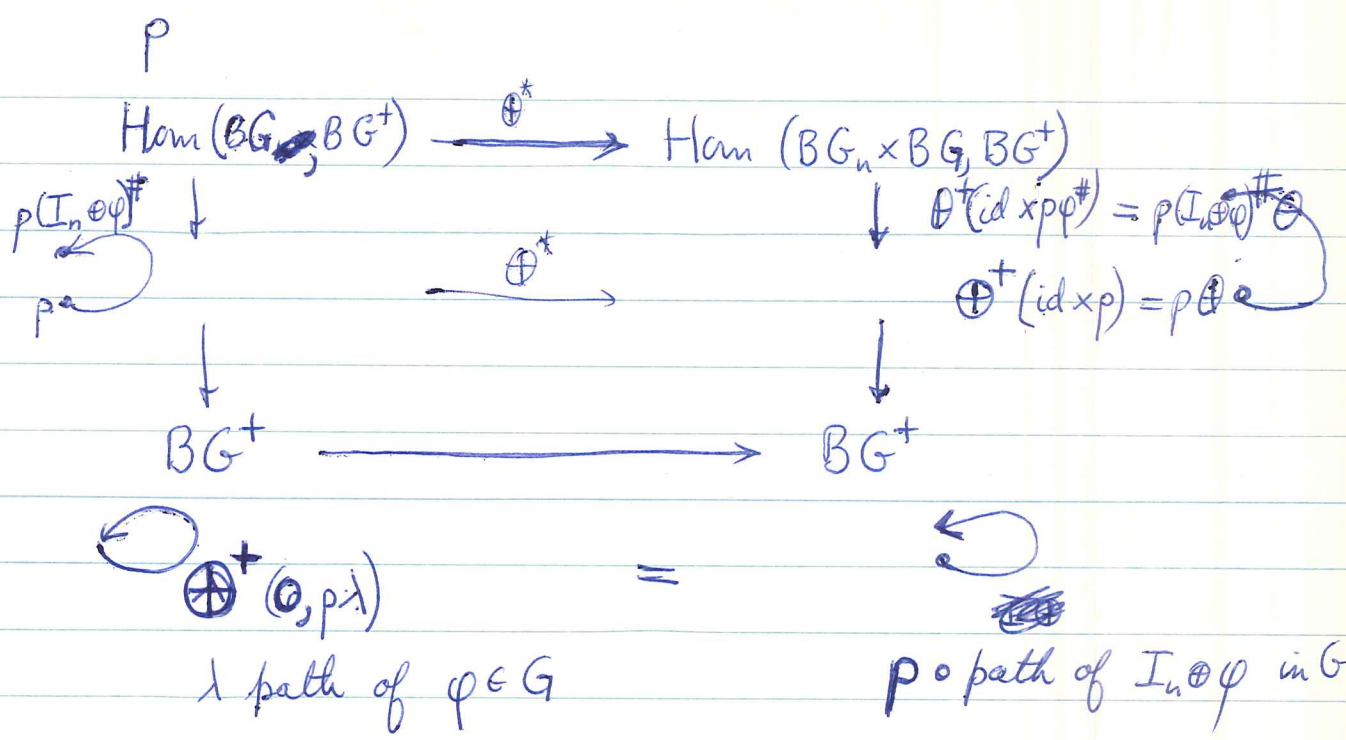 p
Hom (BG, BG⁺) ⊕* Hom (BGₙ × BG, BG⁺)
p(Iₙ⊕φ)^# ⊕⁺(id × pφ^#) = p(Iₙ⊕φ)^# ⊕
p ⊕* ⊕⁺(id × p) = p⊕
BG⁺ BG⁺
⊕⁺(0, pλ) =
λ path of φ ∈ G p∘path of Iₙ⊕φ in G